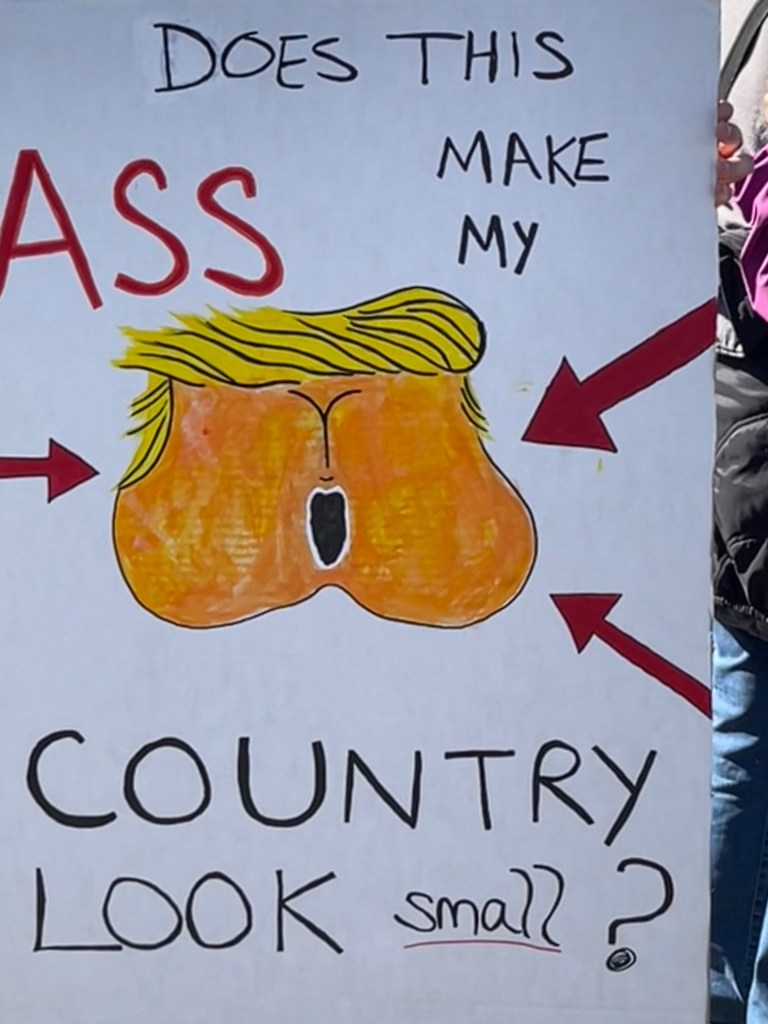 DOES THIS
ASS
MAKE
MY
COUNTRY
LOOK small?